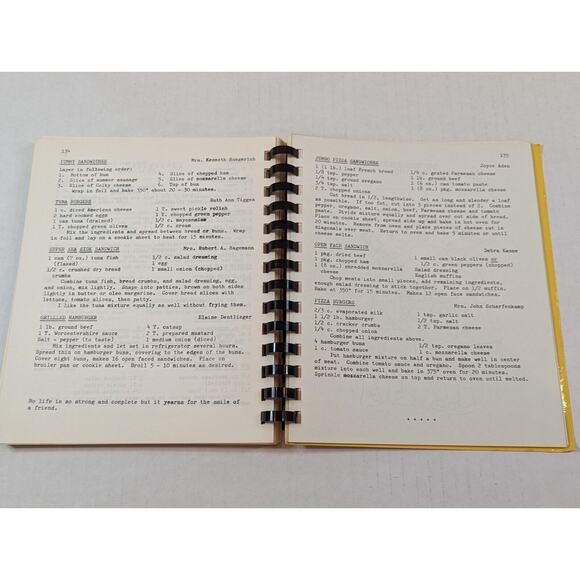 134
YUMMY SANDWICHES Mrs. Kenneth Huegerich
Layer in following order:
1. Bottom of bun 4. Slice of chopped ham
2. Slice of summer sausage 5. Slice of mozzarella cheese
3. Slice of Colby cheese 6. Top of bun
Wrap in foil and bake 350° about 20 - 30 minutes.
TUNA BURGERS Ruth Ann Tigges
1 c. diced American cheese 1 T. sweet pickle relish
2 hard cooked eggs 1 T. chopped green pepper
1 can tuna (drained) 1/2 c. mayonnaise
1 T. chopped green olives 1/2 c. cream
Mix the ingredients and spread between bread or buns. Wrap
in foil and lay on a cookie sheet to heat for 15 minutes.
SUPER SEA SIDE SANDWICH Mrs. Hubert A. Hagemann
1 can (7 oz.) tuna fish 1/2 c. salad dressing
(flaked) 1 egg
1/2 c. crushed dry bread 1 small onion (chopped)
crumbs
Combine tuna fish, bread crumbs, and salad dressing, egg,
and onion, mix lightly. Shape into patties, brown on both sides
lightly in butter or oleo margarine. Cover bread slices with
lettuce, tomato slices, then patty.
I use the tuna mixture equally as well without frying them.
GRILLED HAMBURGER Elaine Dentlinger
1 lb. ground beef 4 T. catsup
1 T. Worcestershire sauce 2 T. prepared mustard
Salt - pepper (to taste) 1 medium onion (diced)
Mix ingredients and let set in refrigerator several hours.
Spread thin on hamburger buns, covering to the edges of the buns.
Cover eight buns, makes 16 open faced sandwiches. Place on
broiler pan or cookie sheet. Broil 5 - 10 minutes as desired.
No life is so strong and complete but it yearns for the smile of
a friend.
135
JUMBO PIZZA SANDWICHES Joyce Aden
1 (1 lb.) loaf French bread 1/4 c. grated Parmesan cheese
1/8 tsp. pepper 1 lb. ground beef
1/4 tsp. ground oregano 1 (6 oz.) can tomato paste
3/4 tsp. salt 1 (8 oz.) pkg. mozzarella cheese
2 T. chopped onions
Cut bread in 1/2, lengthwise. Get as long and slender a loaf
as possible. If too fat, cut into 3 pieces instead of 2. Combine
pepper, oregano, salt, onion, beef, Parmesan cheese and tomato
paste. Divide mixture equally and spread over cut side of bread.
Place on cookie sheet, spread side up and bake in hot oven for
20 minutes. Remove from oven and place pieces of cheese cut in
diagonals over meat. Return to oven and bake 5 minutes or until
cheese melts.
OPEN FACE SANDWICH Debra Kanne
1 pkg. dried beef 1 small can black olives or
1 pkg. chopped ham 1/2 c. green peppers (chopped)
(8 oz.) shredded mozzarella Salad dressing
cheese English muffins
Chop meats into small pieces, and remaining ingredients,
enough salad dressing to stick together. Place on 1/2 muffin.
Bake at 350° for 15 minutes. Makes 12 open face sandwiches.
PIZZA BURGERS Mrs. John Scharfenkamp
2/3 c. evaporated milk 1 tsp. garlic salt
1 1/2 lb. hamburger 1/2 tsp. salt
1/2 c. cracker crumbs 2 T. Parmesan cheese
1/4 c. chopped onion
Combine all ingredients above.
4 hamburger buns 1/2 tsp. oregano leaves
1 c. tomato sauce 1 c. mozzarella cheese
Put hamburger mixture on half a bun and make well in center
of meat. Combine tomato sauce and oregano. Spoon 2 tablespoons
mixture into each well and bake in 375° oven for 20 minutes.
Sprinkle mozzarella cheese on top and return to oven until melted.
* * * * *